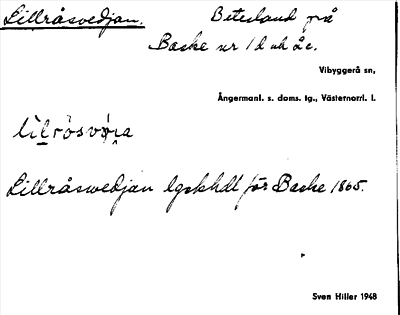 Lillråsvedjan. Betesland på
Baske nr 1 d uh åc.
Vibyggerå sn,
Ångermanl. s. doms. tg., Västernorrl. l.
Lillråswedjan lgskhdl för Baske 1865.
Sven Hiller 1948